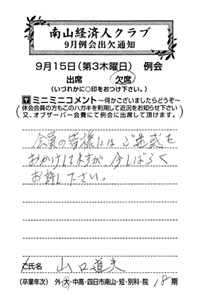 南山経済人クラブ
9月例会出欠通知
9月15日(第3木曜日) 例会
出席 欠席
(いずれかに○印をおつけ下さい。)
ミニミニコメント 〜何かございましたらどうぞ〜
休会会員の方もこのハガキを利用して近況をお知らせ下さい
又、オブザーバー会費にて例会に出席して頂けます。
会員の皆様にはご迷惑を
おかけしますが 今しばらく
お許し下さい。
ご氏名 山口道夫
(卒業年次) 外・大・中高・四日市南山・短・別科・院 18期